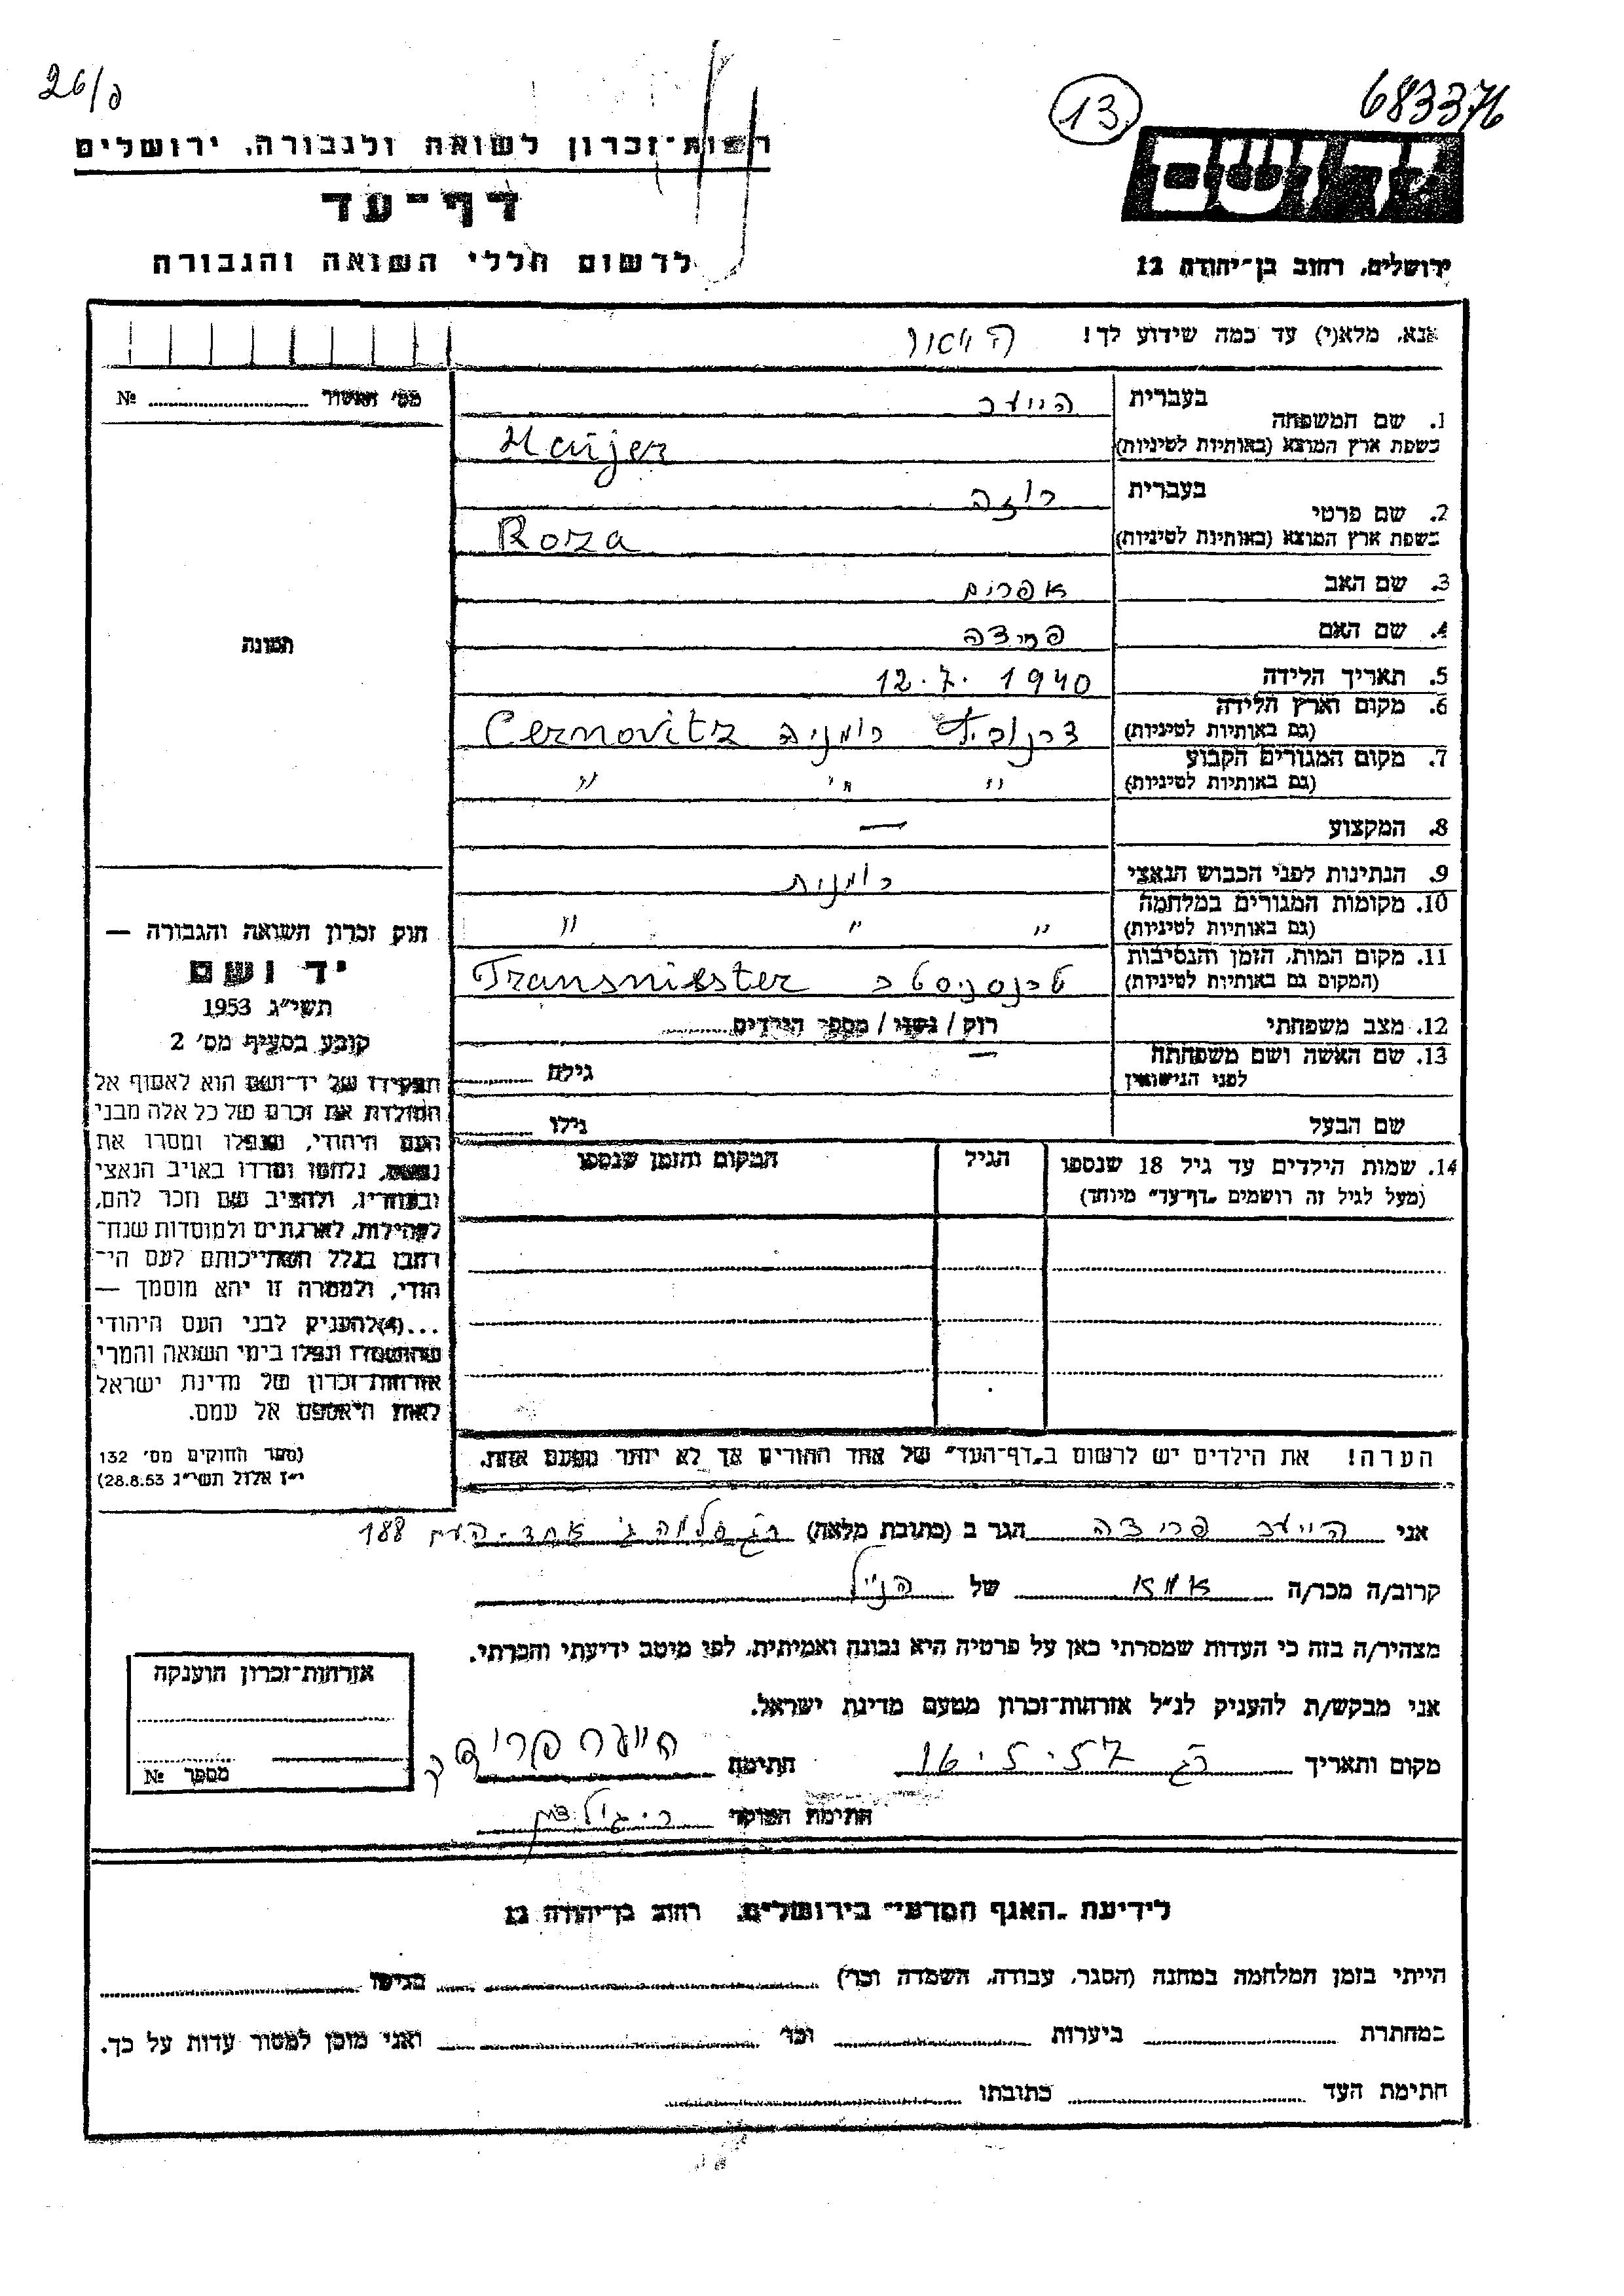 26/
13
683376
רשות־זכרון לשואה ולגבורה, ירושלים
דף־עד
לרשום חללי השואה והגבורה
יד ושם
ירושלים, רחוב בן־יהודה 12
אנא, מלא(י) עד כמה שידוע לך!
מס׳ האשור № ....................
1. שם המשפחה
בעברית הייער
בשפת ארץ המוצא (באותיות לטיניות) Haijer
2. שם פרטי
בעברית רוזה
בשפת ארץ המוצא (באותיות לטיניות) Roza
3. שם האב אפרים
4. שם האם פרידה
5. תאריך הלידה 12.7.1940
6. מקום וארץ הלידה
(גם באותיות לטיניות) צרנוביץ רומניה Cernovitz
7. מקום המגורים הקבוע
(גם באותיות לטיניות) " " "
8. המקצוע —
9. הנתינות לפני הכבוש הנאצי רומנית
10. מקומות המגורים במלחמה
(גם באותיות לטיניות) " " "
11. מקום המות, הזמן והנסיבות
(המקום גם באותיות לטיניות) טרנסניסטר Transniester
12. מצב משפחתי רווק / נשוי / מספר הילדים..........
13. שם האשה ושם משפחתה — גילה ..........
לפני הנישואין
שם הבעל גילו ..........
14. שמות הילדים עד גיל 18 שנספו הגיל המקום והזמן שנספו
(מעל לגיל זה רושמים „דף־עד" מיוחד)
הערה! את הילדים יש לרשום ב„דף־העד" של אחד ההורים אך לא יותר מפעם אחת.
תמונה
חוק זכרון השואה והגבורה —
יד ושם
תשי״ג 1953
קובע בסעיף מס׳ 2
תפקידו של יד־ושם הוא לאסוף אל
המולדת את זכרם של כל אלה מבני
העם היהודי, שנפלו ומסרו את
נפשם, נלחמו ומרדו באויב הנאצי
ובעוזריו, ולהציב שם וזכר להם,
לקהילות, לארגונים ולמוסדות שנח־
רבו בגלל השתייכותם לעם הי־
הודי, ולמטרה זו יהא מוסמך —
...(4) להעניק לבני העם היהודי
שהושמדו ונפלו בימי השואה והמרי
אזרחות־זכרון של מדינת ישראל
לאות היאספם אל עמם.
(ספר החוקים מס׳ 132
י״ז אלול תשי״ג 28.8.53)
אני הייער פרידה הגר ב (כתובת מלאה) רג סלמה ג׳ אחד-העם 188
קרוב/ה מכר/ה אמא של הנ״ל
מצהיר/ה בזה כי העדות שמסרתי כאן על פרטיה היא נכונה ואמיתית, לפי מיטב ידיעתי והכרתי.
אני מבקש/ת להעניק לנ״ל אזרחות־זכרון מטעם מדינת ישראל.
מקום ותאריך רג 16.5.57 חתימה הייער פרידה
חתימת הפוקד
אזרחות־זכרון הוענקה
מספר №
לידיעת „האגף המדעי״ בירושלים, רחוב בן־יהודה 12
הייתי בזמן המלחמה במחנה (הסגר, עבודה, השמדה וכו׳) .................... בגיטו ....................
במחתרת .................... ביערות .................... וכו׳ .................... ואני מוכן למסור עדות על כך.
חתימת העד .................... כתובתו ....................